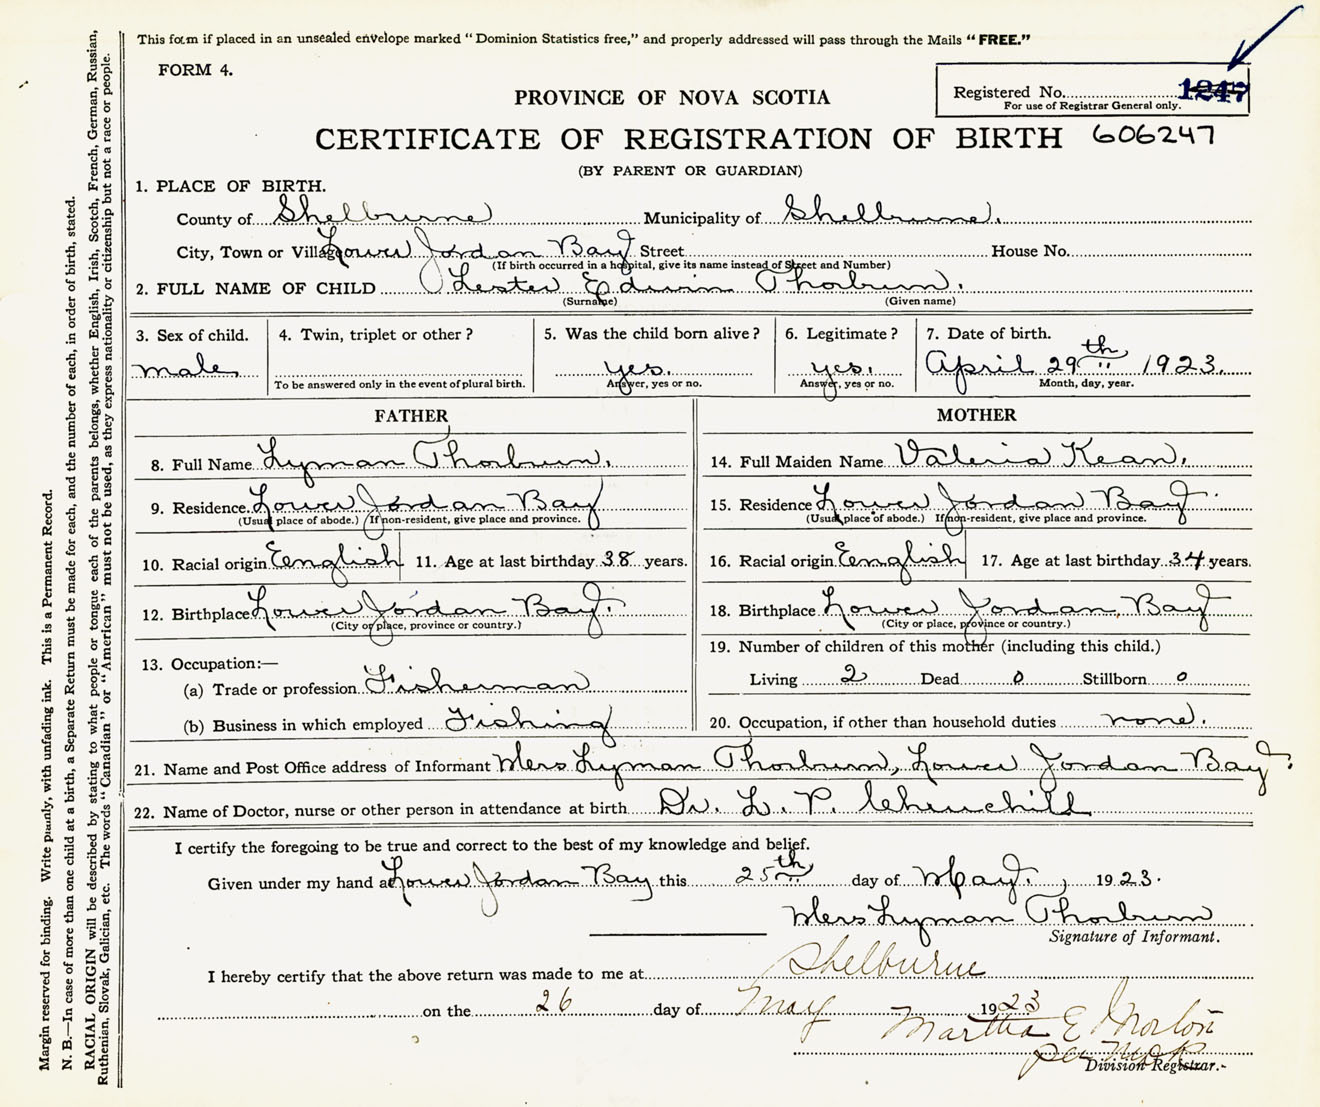 This form if placed in an unsealed envelope marked "Dominion Statistics free," and properly addressed will pass through the Mails "FREE."
FORM 4.
Registered No. 1247
For use of Registrar General only.
PROVINCE OF NOVA SCOTIA
CERTIFICATE OF REGISTRATION OF BIRTH 606247
(BY PARENT OR GUARDIAN)
1. PLACE OF BIRTH.
County of Shelburne Municipality of Shelburne.
City, Town or Village Lower Jordan Bay Street House No.
(If birth occurred in a hospital, give its name instead of Street and Number)
2. FULL NAME OF CHILD Lester Edwin Thorburn.
(Surname) (Given name)
3. Sex of child. 4. Twin, triplet or other? 5. Was the child born alive? 6. Legitimate? 7. Date of birth.
male yes. yes. April 29th 1923.
To be answered only in the event of plural birth. Answer, yes or no. Answer, yes or no. Month, day, year.
FATHER MOTHER
8. Full Name Lyman Thorburn. 14. Full Maiden Name Valeria Kean.
9. Residence. Lower Jordan Bay 15. Residence Lower Jordan Bay.
(Usual place of abode.) If non-resident, give place and province. (Usual place of abode.) If non-resident, give place and province.
10. Racial origin English 11. Age at last birthday 38 years. 16. Racial origin English 17. Age at last birthday 34 years.
12. Birthplace Lower Jordan Bay. 18. Birthplace Lower Jordan Bay
(City or place, province or country.) (City or place, province or country.)
13. Occupation:— 19. Number of children of this mother (including this child.)
(a) Trade or profession Fisherman Living 2 Dead 0 Stillborn 0
(b) Business in which employed Fishing 20. Occupation, if other than household duties none.
21. Name and Post Office address of Informant Mrs Lyman Thorburn, Lower Jordan Bay.
22. Name of Doctor, nurse or other person in attendance at birth Dr. L. P. Churchill
I certify the foregoing to be true and correct to the best of my knowledge and belief.
Given under my hand at Lower Jordan Bay this 25th day of May, 1923.
Mrs Lyman Thorburn
Signature of Informant.
I hereby certify that the above return was made to me at Shelburne
on the 26 day of May 1923
Martha E Morton
per
Division Registrar.
Margin reserved for binding. Write plainly, with unfading ink. This is a Permanent Record.
N. B.—In case of more than one child at a birth, a Separate Return must be made for each, and the number of each, in order of birth, stated.
RACIAL ORIGIN will be described by stating to what people or tongue each of the parents belongs, whether English, Irish, Scotch, French, German, Russian,
Ruthenian, Slovak, Galician, etc. The words "Canadian" or "American" must not be used, as they express nationality or citizenship but not a race or people.